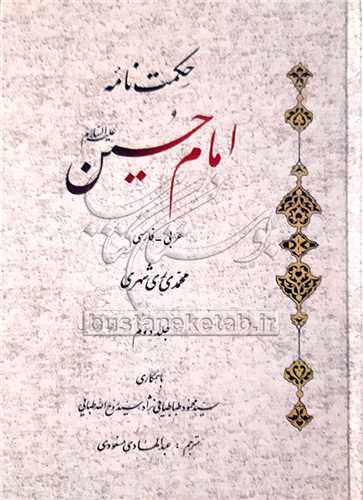 حکمت نامه
امام حسین
علیه‌السلام
عربی - فارسی
محمدی ری شهری
bustaneketab.ir
جلد دوم
با همکاری
سید محمود طباطبایی نژاد، سید روح الله طبائی
مترجم: عبدالهادی مسعودی